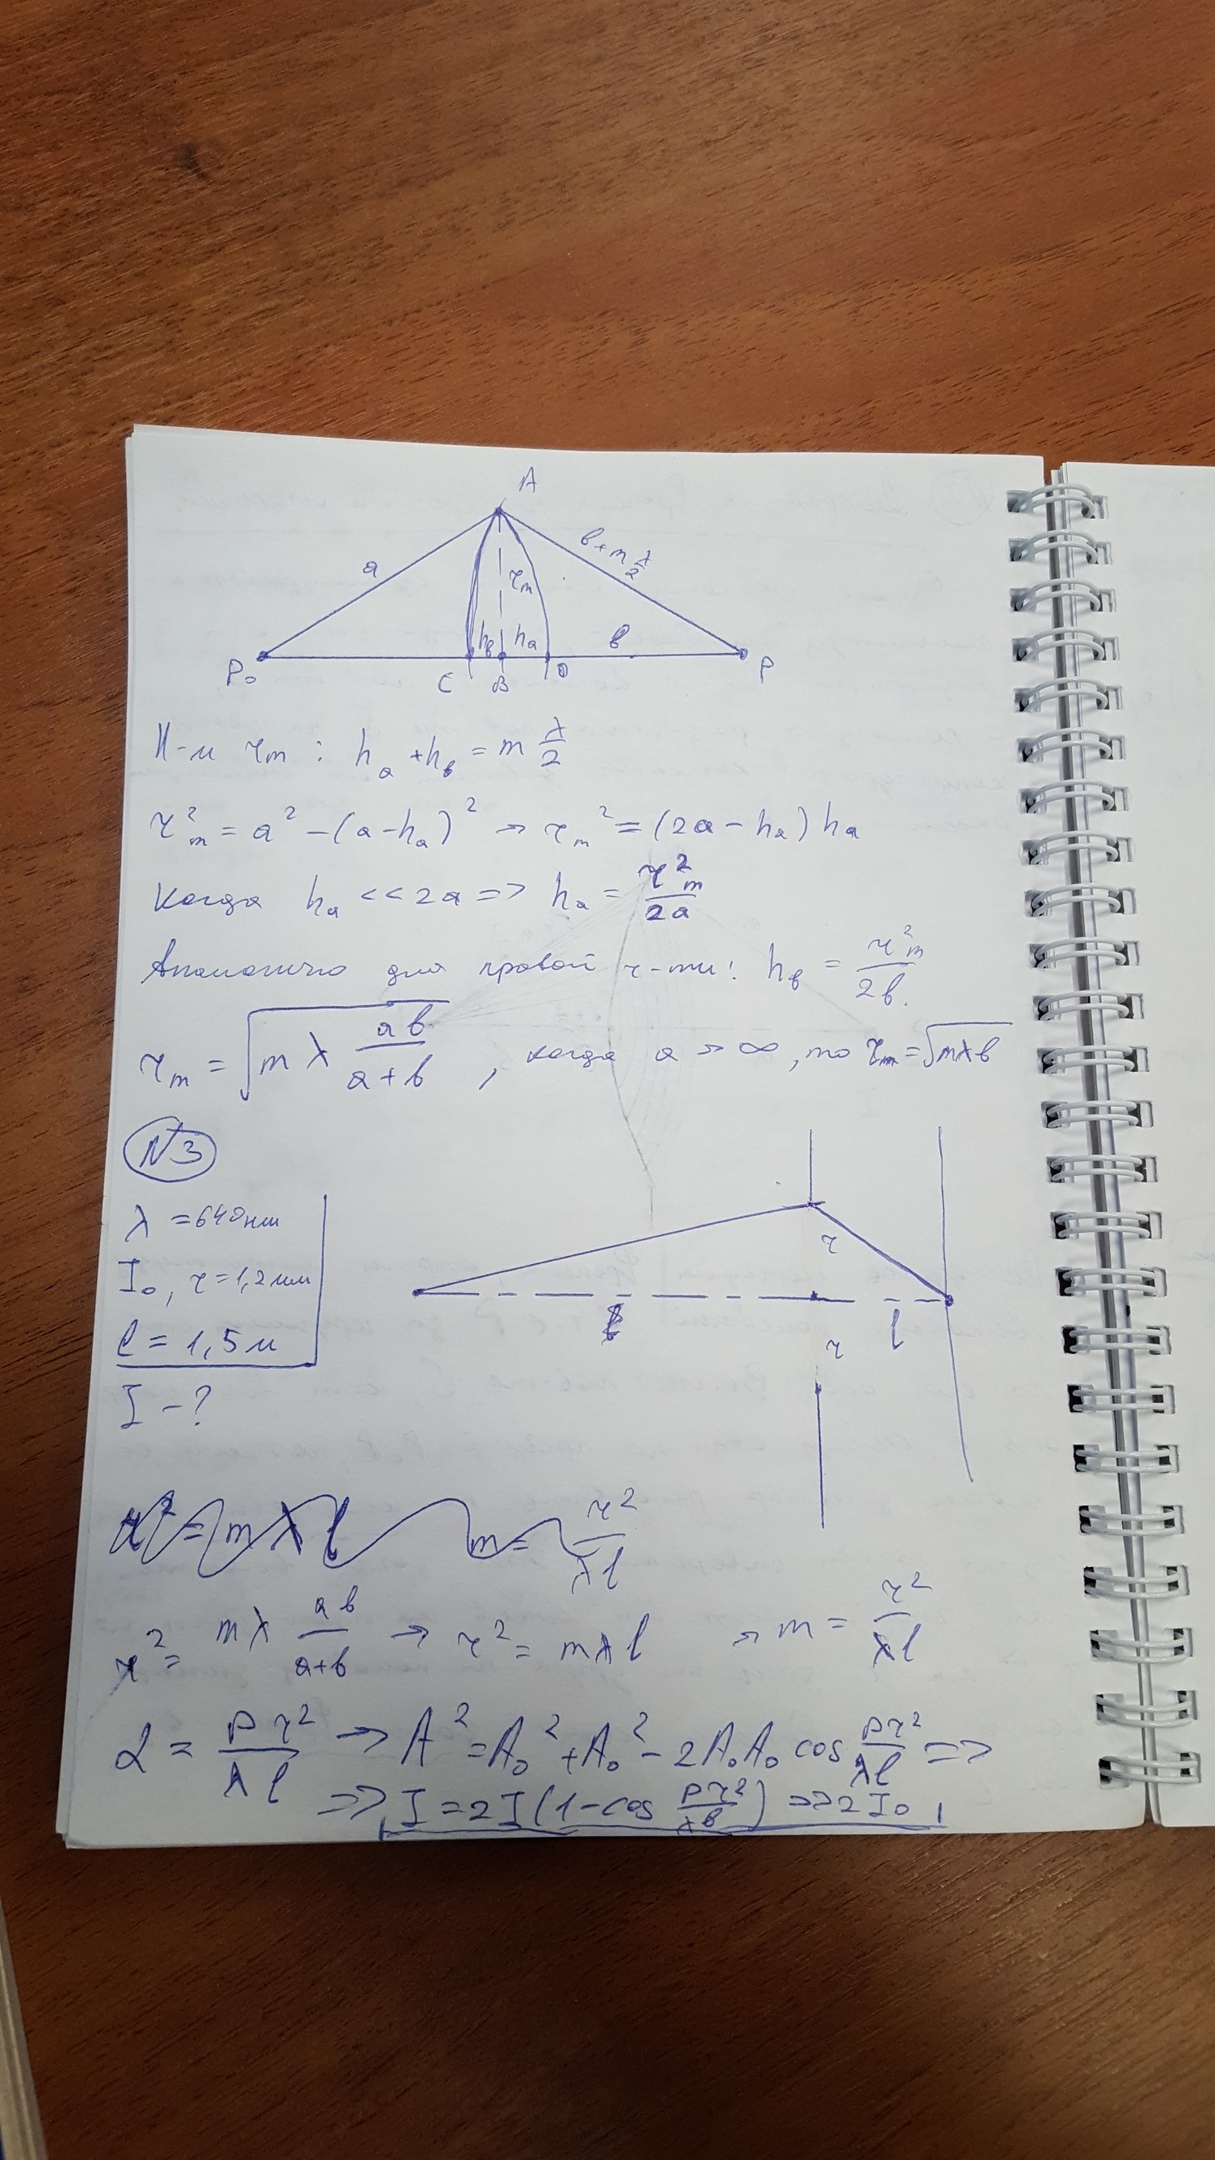 A
a
b+m λ/2
r_m
h_b h_a b
P₀ C B D P
Н-м r_m : h_a + h_b = m λ/2
r²_m = a² – (a–h_a)² → r_m² = (2a – h_a) h_a
Когда h_a << 2a => h_a = r²_m/2a
Аналогично для правой ч-ти: h_b = r²_m/2b.
r_m = √(mλ ab/(a+b)) , когда a → ∞, то r_m = √(mλb)
N3
λ = 640 нм
I₀, r = 1,2 мм
l = 1,5 м
I – ?
r
l
r
r² = mλl m = r²/λl
r² = mλ ab/(a+b) → r² = mλl → m = r²/λl
α = Pr²/λl → A² = A₀² + A₀² – 2A₀A₀ cos Pr²/λl =>
=> I = 2I (1 – cos Pr²/λb) => 2I₀